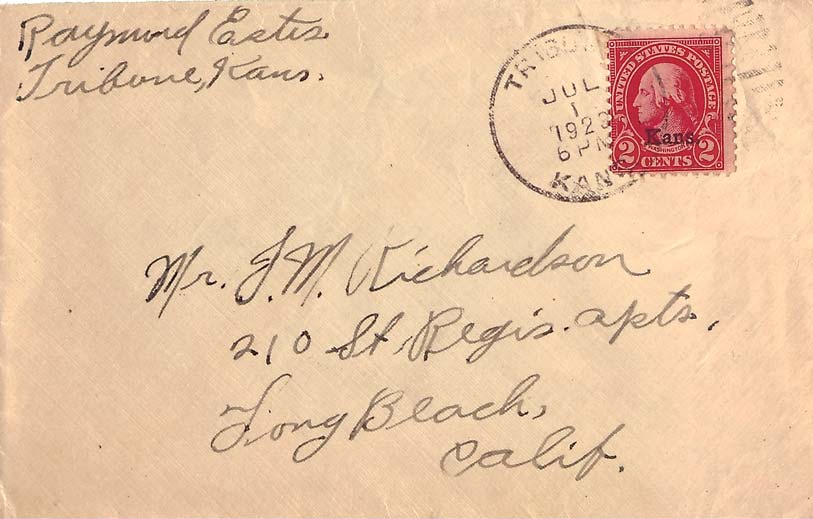 Raymond Estes
Tribune, Kans.
TRIBU
JUL
1
1929
6 PM
KANS
UNITED STATES POSTAGE
Kans.
WASHINGTON
2 CENTS 2
Mr. J. M. Richardson
210 St. Regis. apts.
Long Beach,
Calif.